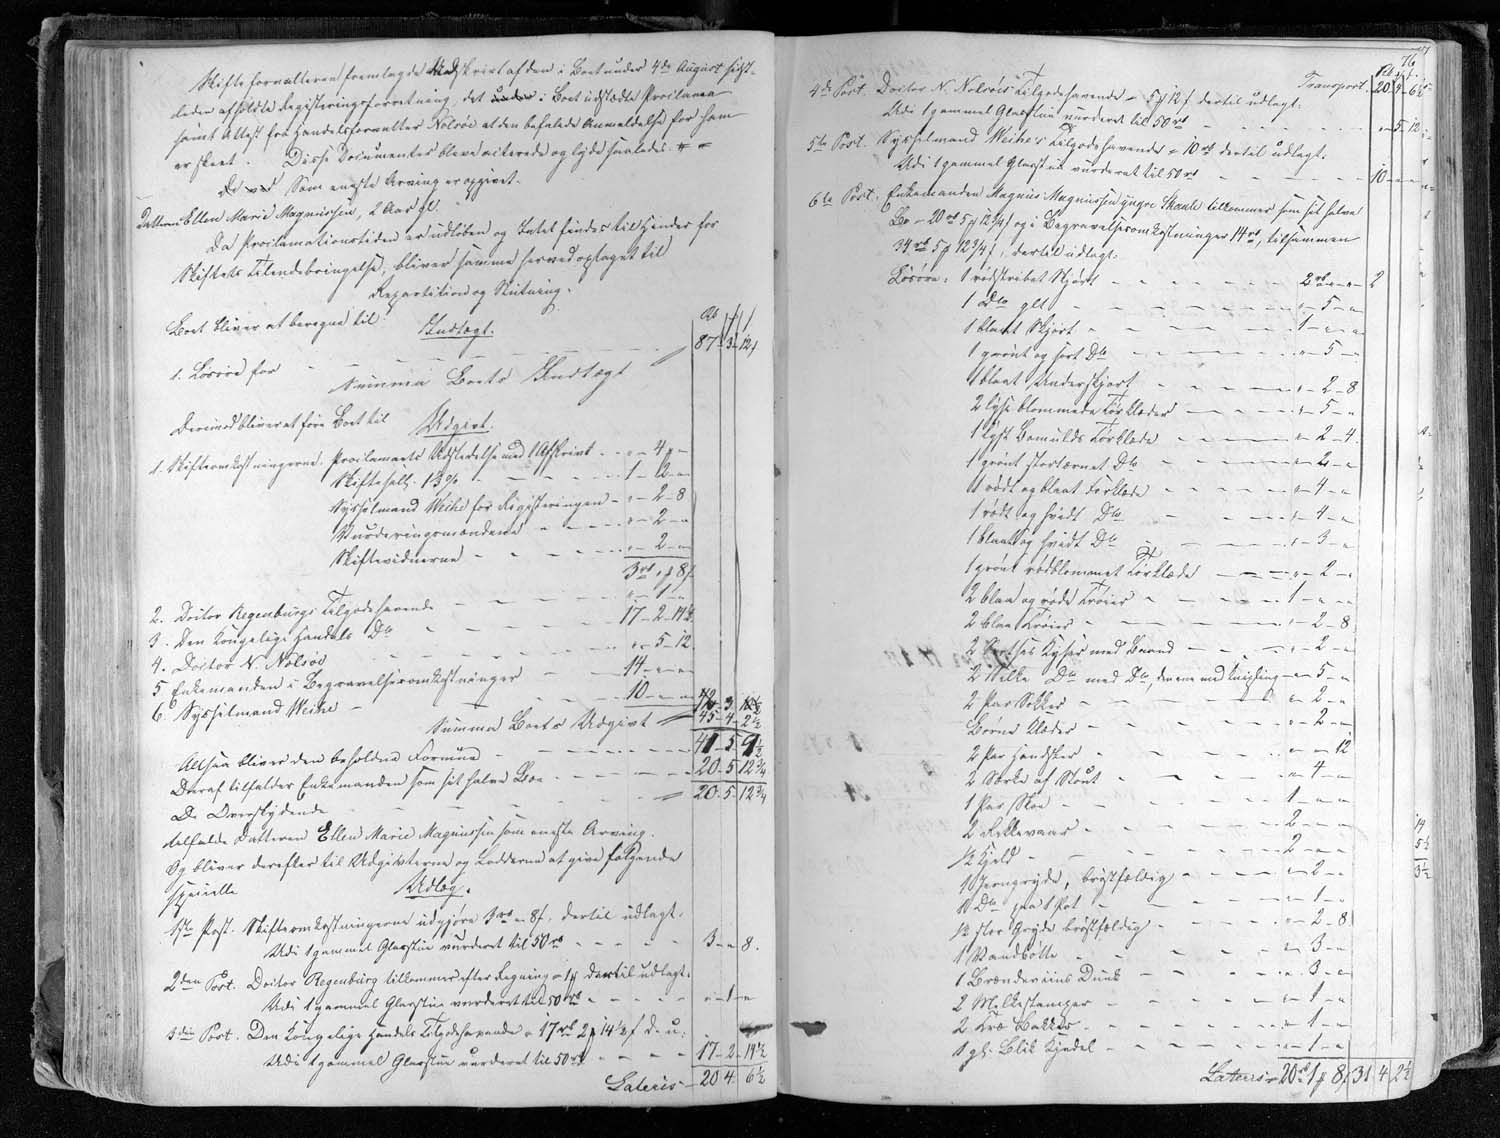 Skifteforvalteren fremlagde Udskrivt af den i Boet under 4de August sidst-
leden afholdte Registeringsforretning, det i Boet udstædte Proclama
samt Attest fra Handelsforvalter Nolsøe at den befalede Anmeldelse for ham
er skeet. Disse Documenter bleve acterede og lyde saaledes:
Som eneste Arving er opgivet.
Datteren Ellen Marie Magnussen, 2 Aar gl.
Da Proclamationstiden er udløben og Intet findes til Hinder for
Skiftets Tilendebringelse, bliver samme herved optaget til
Repartition og Slutning.
Boet bliver at beregne til
Indtægt.
1. Løsøre for 87 - 3 - 12
Summa Boets Indtægt
Derimod bliver at føre Boet til
Udgivt.
1. Skifteomkostningerne. Proclamaets Udstedelse med 1 Afskrivt - 4 -
Skiftesall. 1 3/5 % 1 - 2 -
Sysselmand Weihe for Registeringen - 2 - 8
Vurderingsmændene - 2 -
Skiftevidnerne - 2 -
3 rd 8
2. Doctor Regenburgs Tilgodehavende - 1 -
3. Den Kongelige Handels Dto 17 - 2 - 14½
4. Doctor N. Nolsøe - 5 - 12
5 Enkemanden i Begravelsesomkostninger 14 - -
6. Sysselmand Weihe 10 - -
Summa Boets Udgivt 45 - 4 - 2½
Altsaa bliver den beholdne Formue 41 - 5 - 9½
Deraf tilfalder Enkemanden som sit halve Boe 20 - 5 - 12¾
De Overskydende 20 - 5 - 12¾
tilfalde Datteren Ellen Marie Magnussen som eneste Arving.
Og bliver derefter til Udgivterne og Lodderne at give følgende
specielle
Udlæg.
1ste Post. Skifteomkostningerne udgjøre 3 rd - 8 f, dertil udlagt.
Udi 1 gammel Glasstue vurderet til 50 rd 3 - - 8
2den Post. Doctor Regenburg tilkommer efter Regning - 1 dertil udlagt:
Udi 1 gammel Glasstue vurderet til 50 rd - 1 -
3die Post. Den Kongelige Handels Tilgodehavende - 17 rd 2 14½ f D. u:
Udi 1 gammel Glasstue vurderet til 50 rd 17 - 2 - 14½
Lateris 20 4 6½
76
Transport. 20 - 4 - 6½
4de Post. Doctor N. Nolsøes Tilgodehavende - 5 12 f dertil udlagt:
Udi 1 gammel Glasstue vurderet til 50 rd - 5 - 12
5te Post. Sysselmand Weihes Tilgodehavende - 10 rd dertil udlagt:
Udi 1 gammel Glasstue vurderet til 50 rd 10 - -
6te Post. Enkemanden Magnus Magnussen yngre Skaale tilkommer som sit halve
Bo - 20 rd 5 12¾ f og i Begravelsesomkostninger 14 rd, tilsammen
34 rd 5 12¾ f, dertil udlagt:
Løsøre: 1 rødstribet Skjørt 2 rd - -
1 Dto glt - 5 -
1 blaat Skjørt 1 - -
1 grønt og sort Dto - 5 -
1 blaat Underskjørt - 2 - 8
2 lyse blommede Tørklæder - 5 -
1 lyst Bomulds Tørklæde - 2 - 4
1 grønt stortærnet Dto - 2 -
1 rødt og blaat Forklæde - 4 -
1 rødt og hvidt Dto - 4 -
1 blaat og hvidt Dto - 3 -
1 grønt rødblommet Tørklæde - 2 -
2 blaa og røde Trøier 1 - -
2 blaa Trøier - 2 - 8
2 Kyser med Baand - 2 -
2 Dto med Dto, den ene med Knipling - 5 -
2 Par Sokker - 2 -
Børne Klæder - 2 -
2 Par Handsker - - 12
2 Særke af Stout - 4 -
1 Par Skoe - 1 -
2 2 - -
½ Kjeld 2 - -
1 Jerngryde, brøstfældig - 2 -
1 Dto paa 1 Pot - 1 -
½ stor Gryde brøstfældig - 2 - 8
1 Vandbøtte - 3 -
1 Brændeviins Dunk - 3 -
2 Melkestamper - 1 -
2 Træ Bakker - 1 -
1 gl. Blik Kjedel - 1 -
Lateris 20 rd 1 8 f 31 4 2½